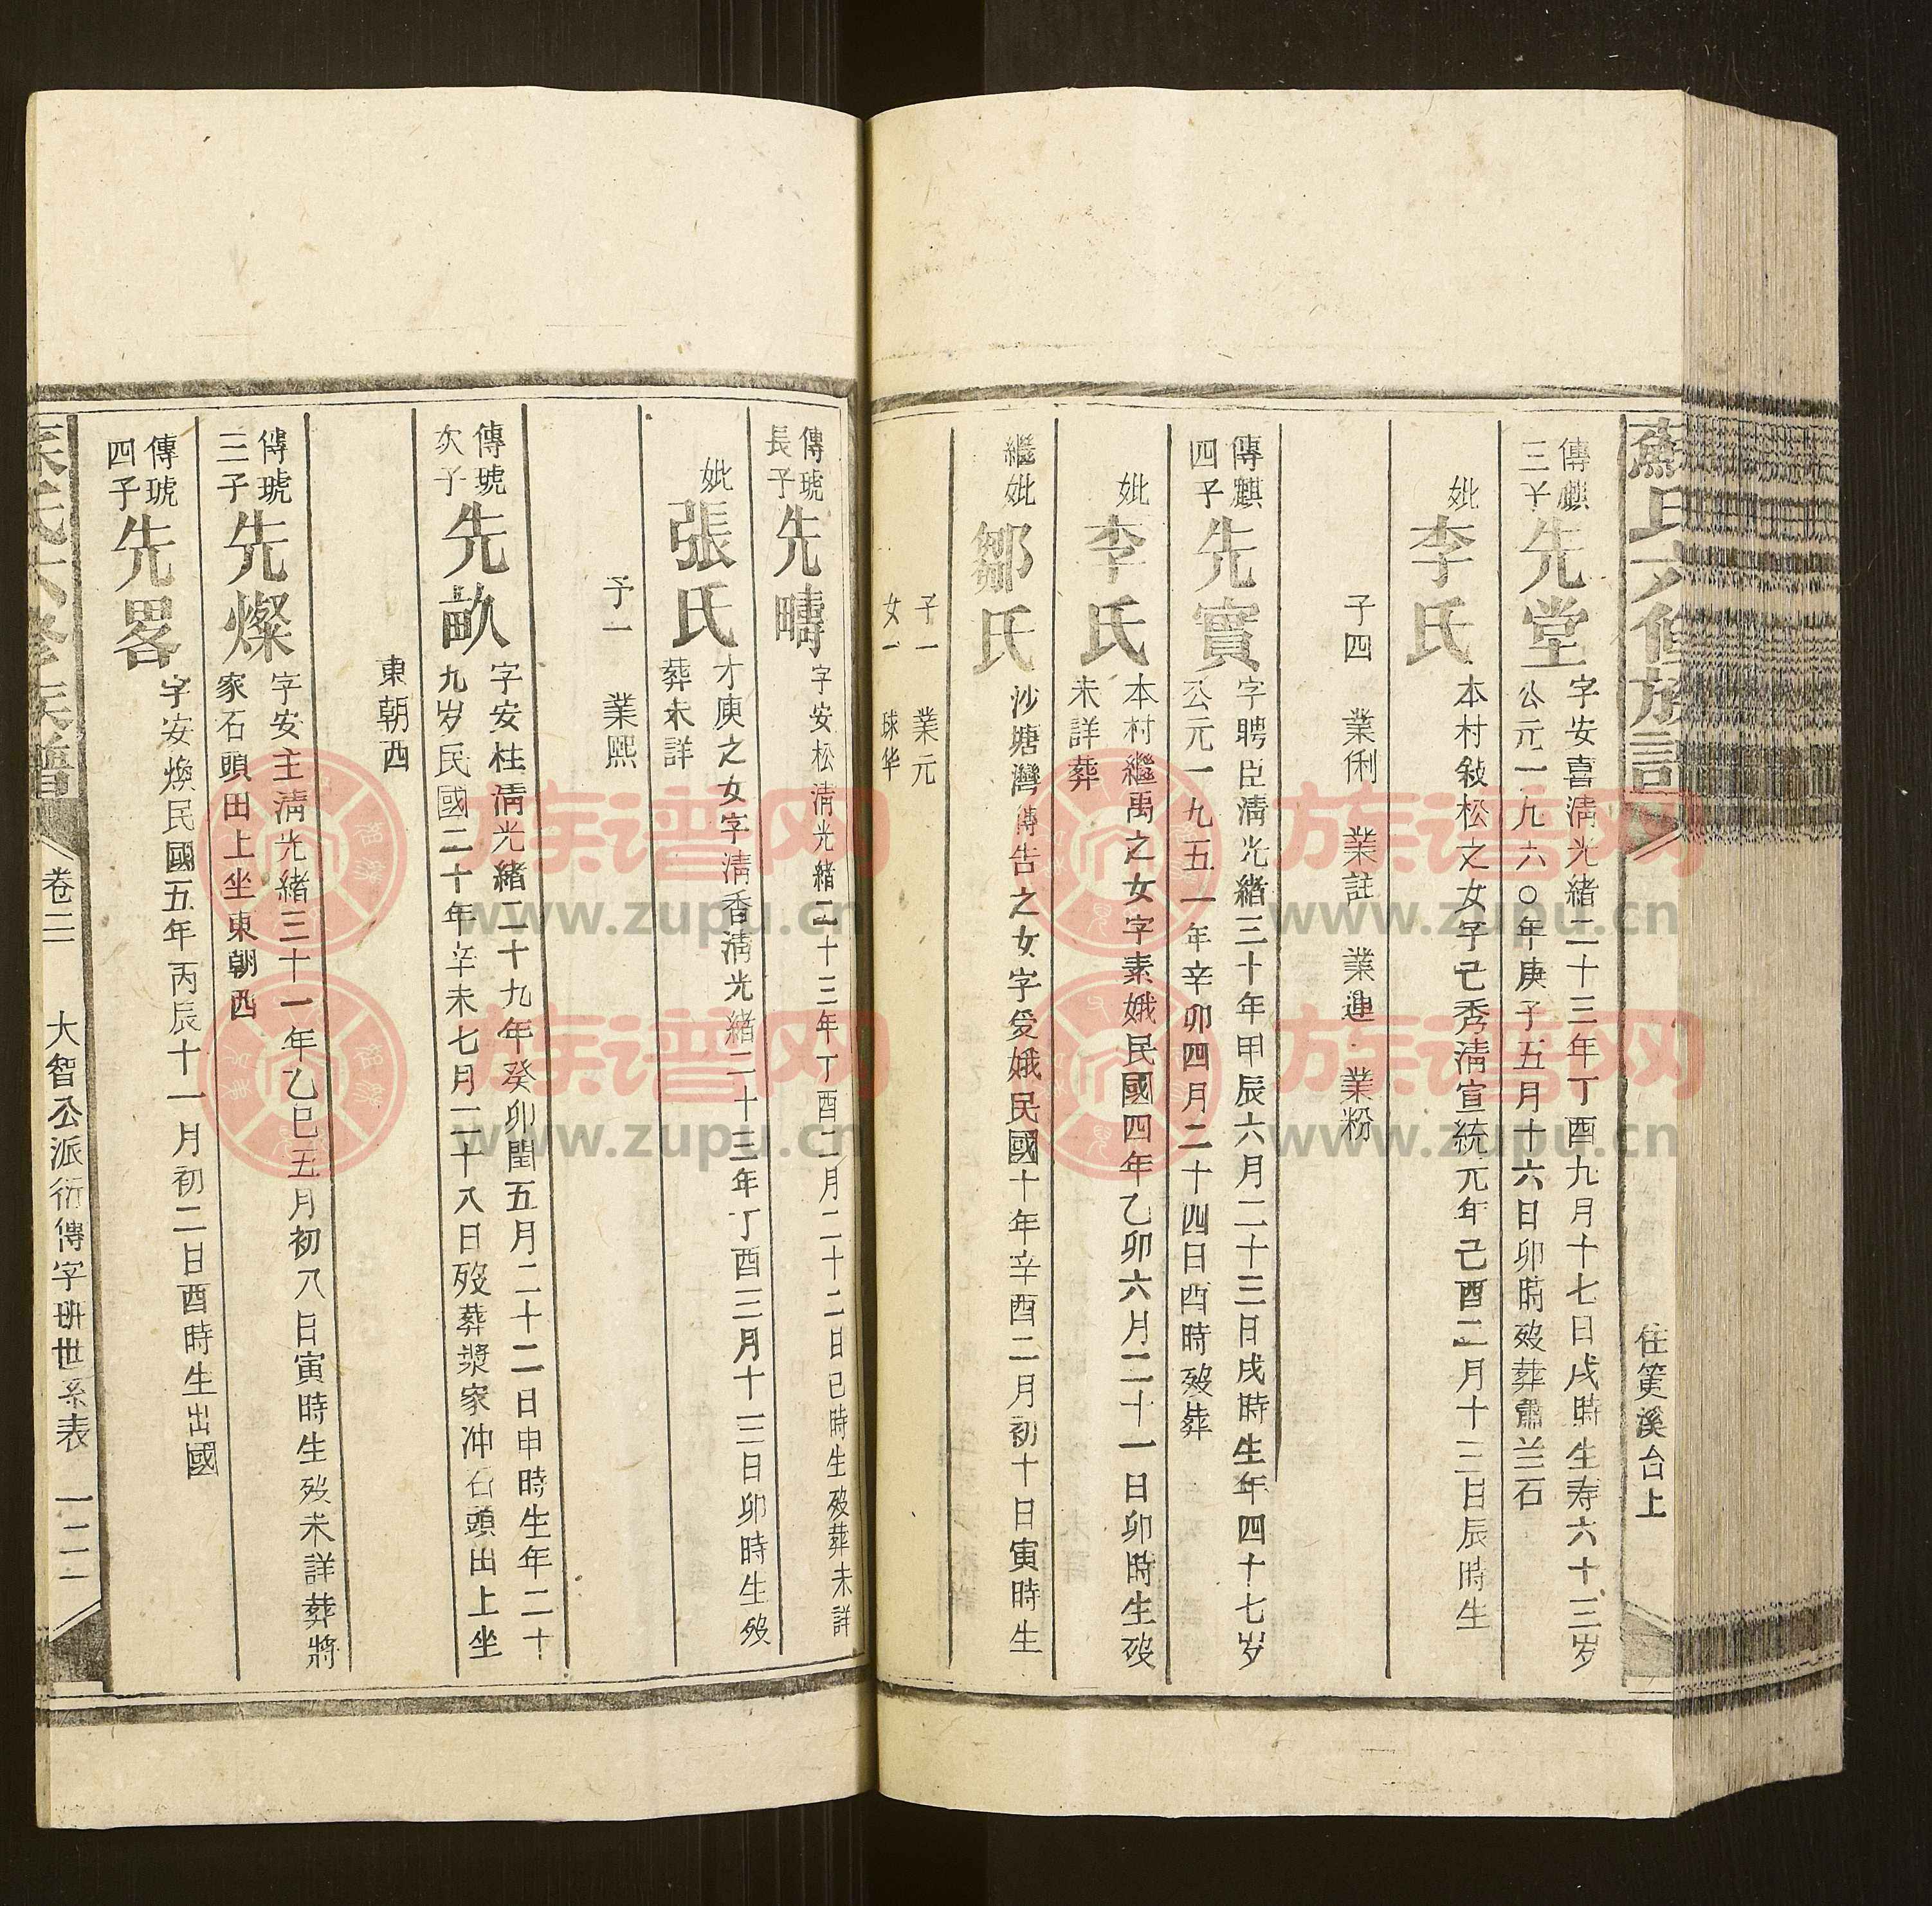 蘇氏六修族譜
住筻溪台上
傳麒三子
先堂
字安喜清光緒二十三年丁酉九月十七日戌時生寿六十三岁
公元一九六〇年庚子五月十六日卯時殁葬肅兰石
妣
李氏
本村敍松之女字己秀清宣統元年己酉二月十三日辰時生
子四 業俐 業註 業連 業粉
傳麒四子
先實
字聘臣清光緒三十年甲辰六月二十三日戌時生年四十七岁
公元一九五一年辛卯四月二十四日酉時殁葬
妣
李氏
本村繼禹之女字素娥民國四年乙卯六月二十一日卯時生殁
未詳葬
繼妣
鄒氏
沙塘灣傳告之女字爱娥民國十年辛酉二月初十日寅時生
子一 業元
女一 球华
傳琥長子
先疇
字安松清光緒二十三年丁酉二月二十二日已時生殁葬未詳
妣
張氏
才庚之女字清香清光緒二十三年丁酉三月十三日卯時生殁
葬未詳
子一 業熙
傳琥次子
先畝
字安柱清光緒二十九年癸卯閏五月二十二日申時生年二十
九岁民國二十年辛未七月二十八日殁葬漿家冲石頭出上坐
東朝西
傳琥三子
先燦
字安主清光緒三十一年乙巳五月初八日寅時生殁未詳葬將
家石頭出上坐東朝西
傳琥四子
先畧
字安煥民國五年丙辰十一月初二日酉時生出國
氏六修族譜
卷二
大智公派衍傳字班世系表
一二二
族谱网
www.zupu.cn
族谱网
www.zupu.cn
族谱网
www.zupu.cn
族谱网
www.zupu.cn